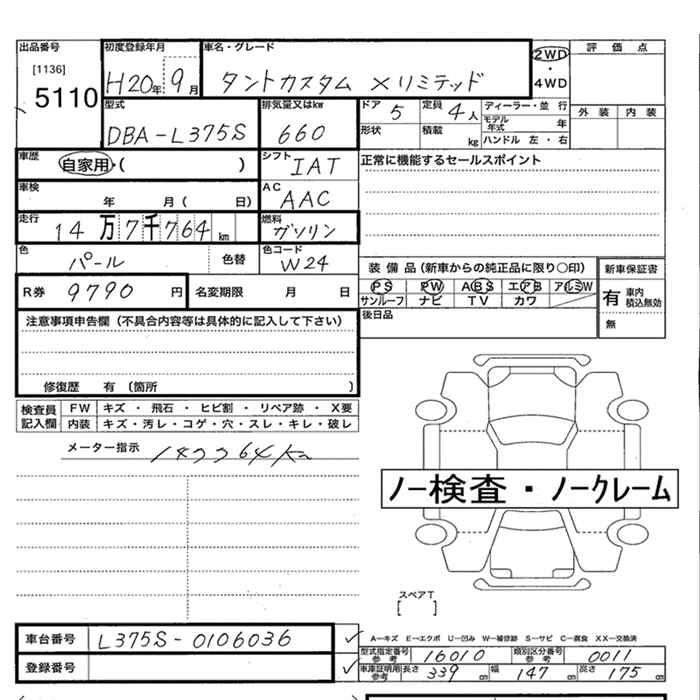 出品番号
[1136]
5110
初度登録年月
H20年 9月
車名・グレード
タントカスタム Xリミテッド
2WD
・
4WD
評価点
外装 内装
型式
DBA-L375S
排気量又はkw
660
ドア 5
定員 4人
ディーラー・並行
形状
積載 kg
モデル年式 年
ハンドル 左・右
車歴
自家用・( )
シフト
IAT
正常に機能するセールスポイント
車検
年 月( 日)
AC
AAC
走行
14万7千764km
燃料
ガソリン
色
パール
色替
色コード
W24
装備品(新車からの純正品に限り○印)
PS PW ABS エアB アルミW
サンルーフ ナビ TV カワ
新車保証書
有 車内積込無効
無
R券 9790円
名変期限 月 日
後日品
注意事項申告欄(不具合内容等は具体的に記入して下さい)
修復歴 有(箇所 )
検査員記入欄
FW キズ・飛石・ヒビ割・リペア跡・X要
内装 キズ・汚レ・コゲ・穴・スレ・キレ・破レ
メーター指示
ノー検査・ノークレーム
スペアT
[ ]
車台番号 L375S-0106036
登録番号
A―キズ E―エクボ U―凹み W―補修跡 S―サビ C―腐食 XX―交換済
型式指定番号 参考 16010
類別区分番号 参考 0011
車庫証明用 参考 長さ 339cm 幅 147cm 高さ 175cm